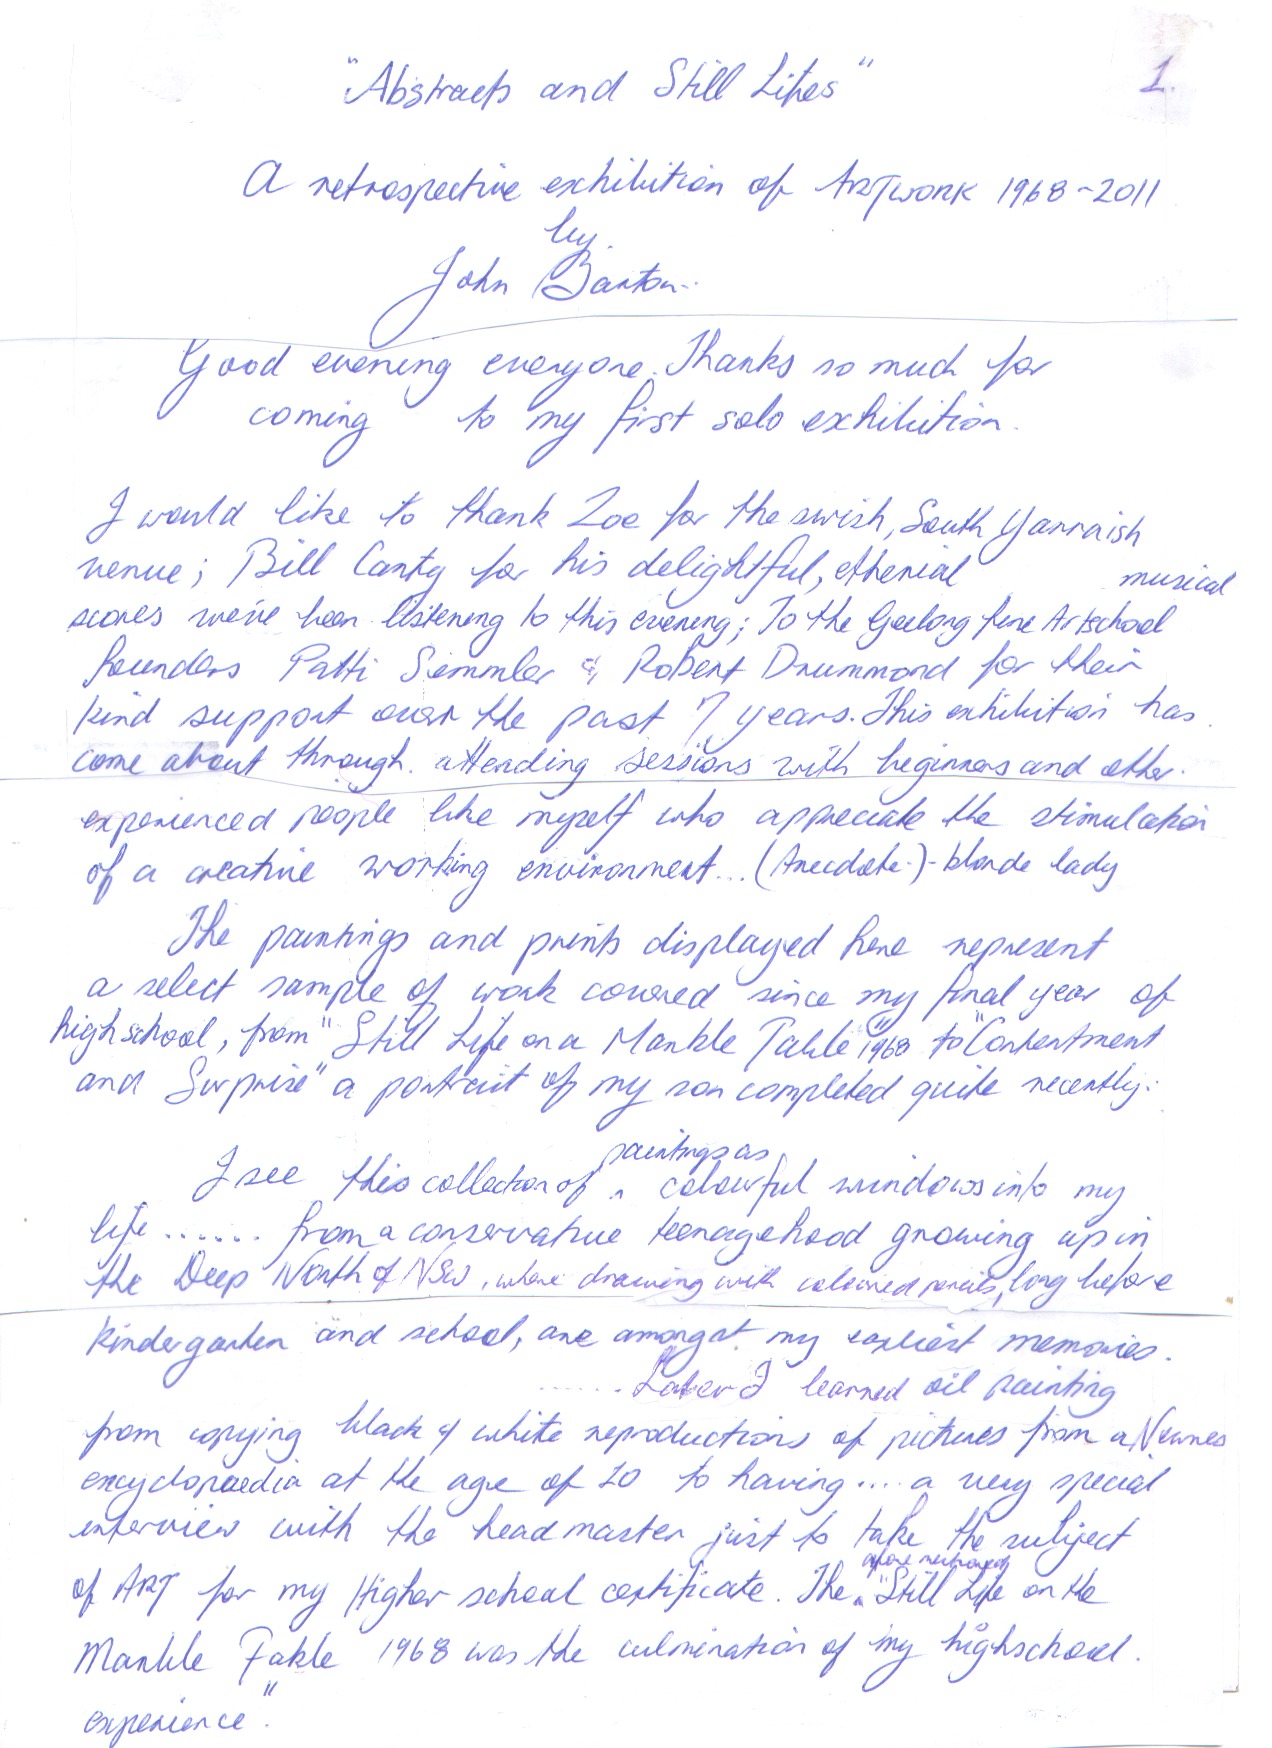 "Abstracts and Still Lifes"
1.
A retrospective exhibition of ARTWORK 1968-2011
by
John Barton
Good evening everyone. Thanks so much for
coming to my first solo exhibition.
I would like to thank Zoe for the swish, South Yarraish
venue; Bill Canty for his delightful, etherial musical
scores we've been listening to this evening; To the Geelong fine Artschool
founders Patti Semmler & Robert Drummond for their
kind support over the past 7 years. This exhibition has
come about through attending sessions with beginners and other
experienced people like myself who appreciate the stimulation
of a creative working environment... (Anecdote.) - blonde lady
The paintings and prints displayed here represent
a select sample of work covered since my final year of
highschool, from "Still Life on a Marble Table" 1968 to "Contentment
and Surprise" a portrait of my son completed quite recently.
paintings as
I see this collection of ^ colourful windows into my
life ...... from a conservative teenagehood growing up in
the Deep North of NSW, where drawing with coloured pencils, long before
kindergarten and school, are amongst my earliest memories.
...... Later I learned oil painting
from copying black & white reproductions of pictures from a Newnes
encyclopaedia at the age of 10 to having .... a very special
interview with the headmaster just to take the subject
afore mentioned
of ART for my Higher school certificate. The ^ "Still Life on the
Marble Table 1968 was the culmination of my highschool
experience".